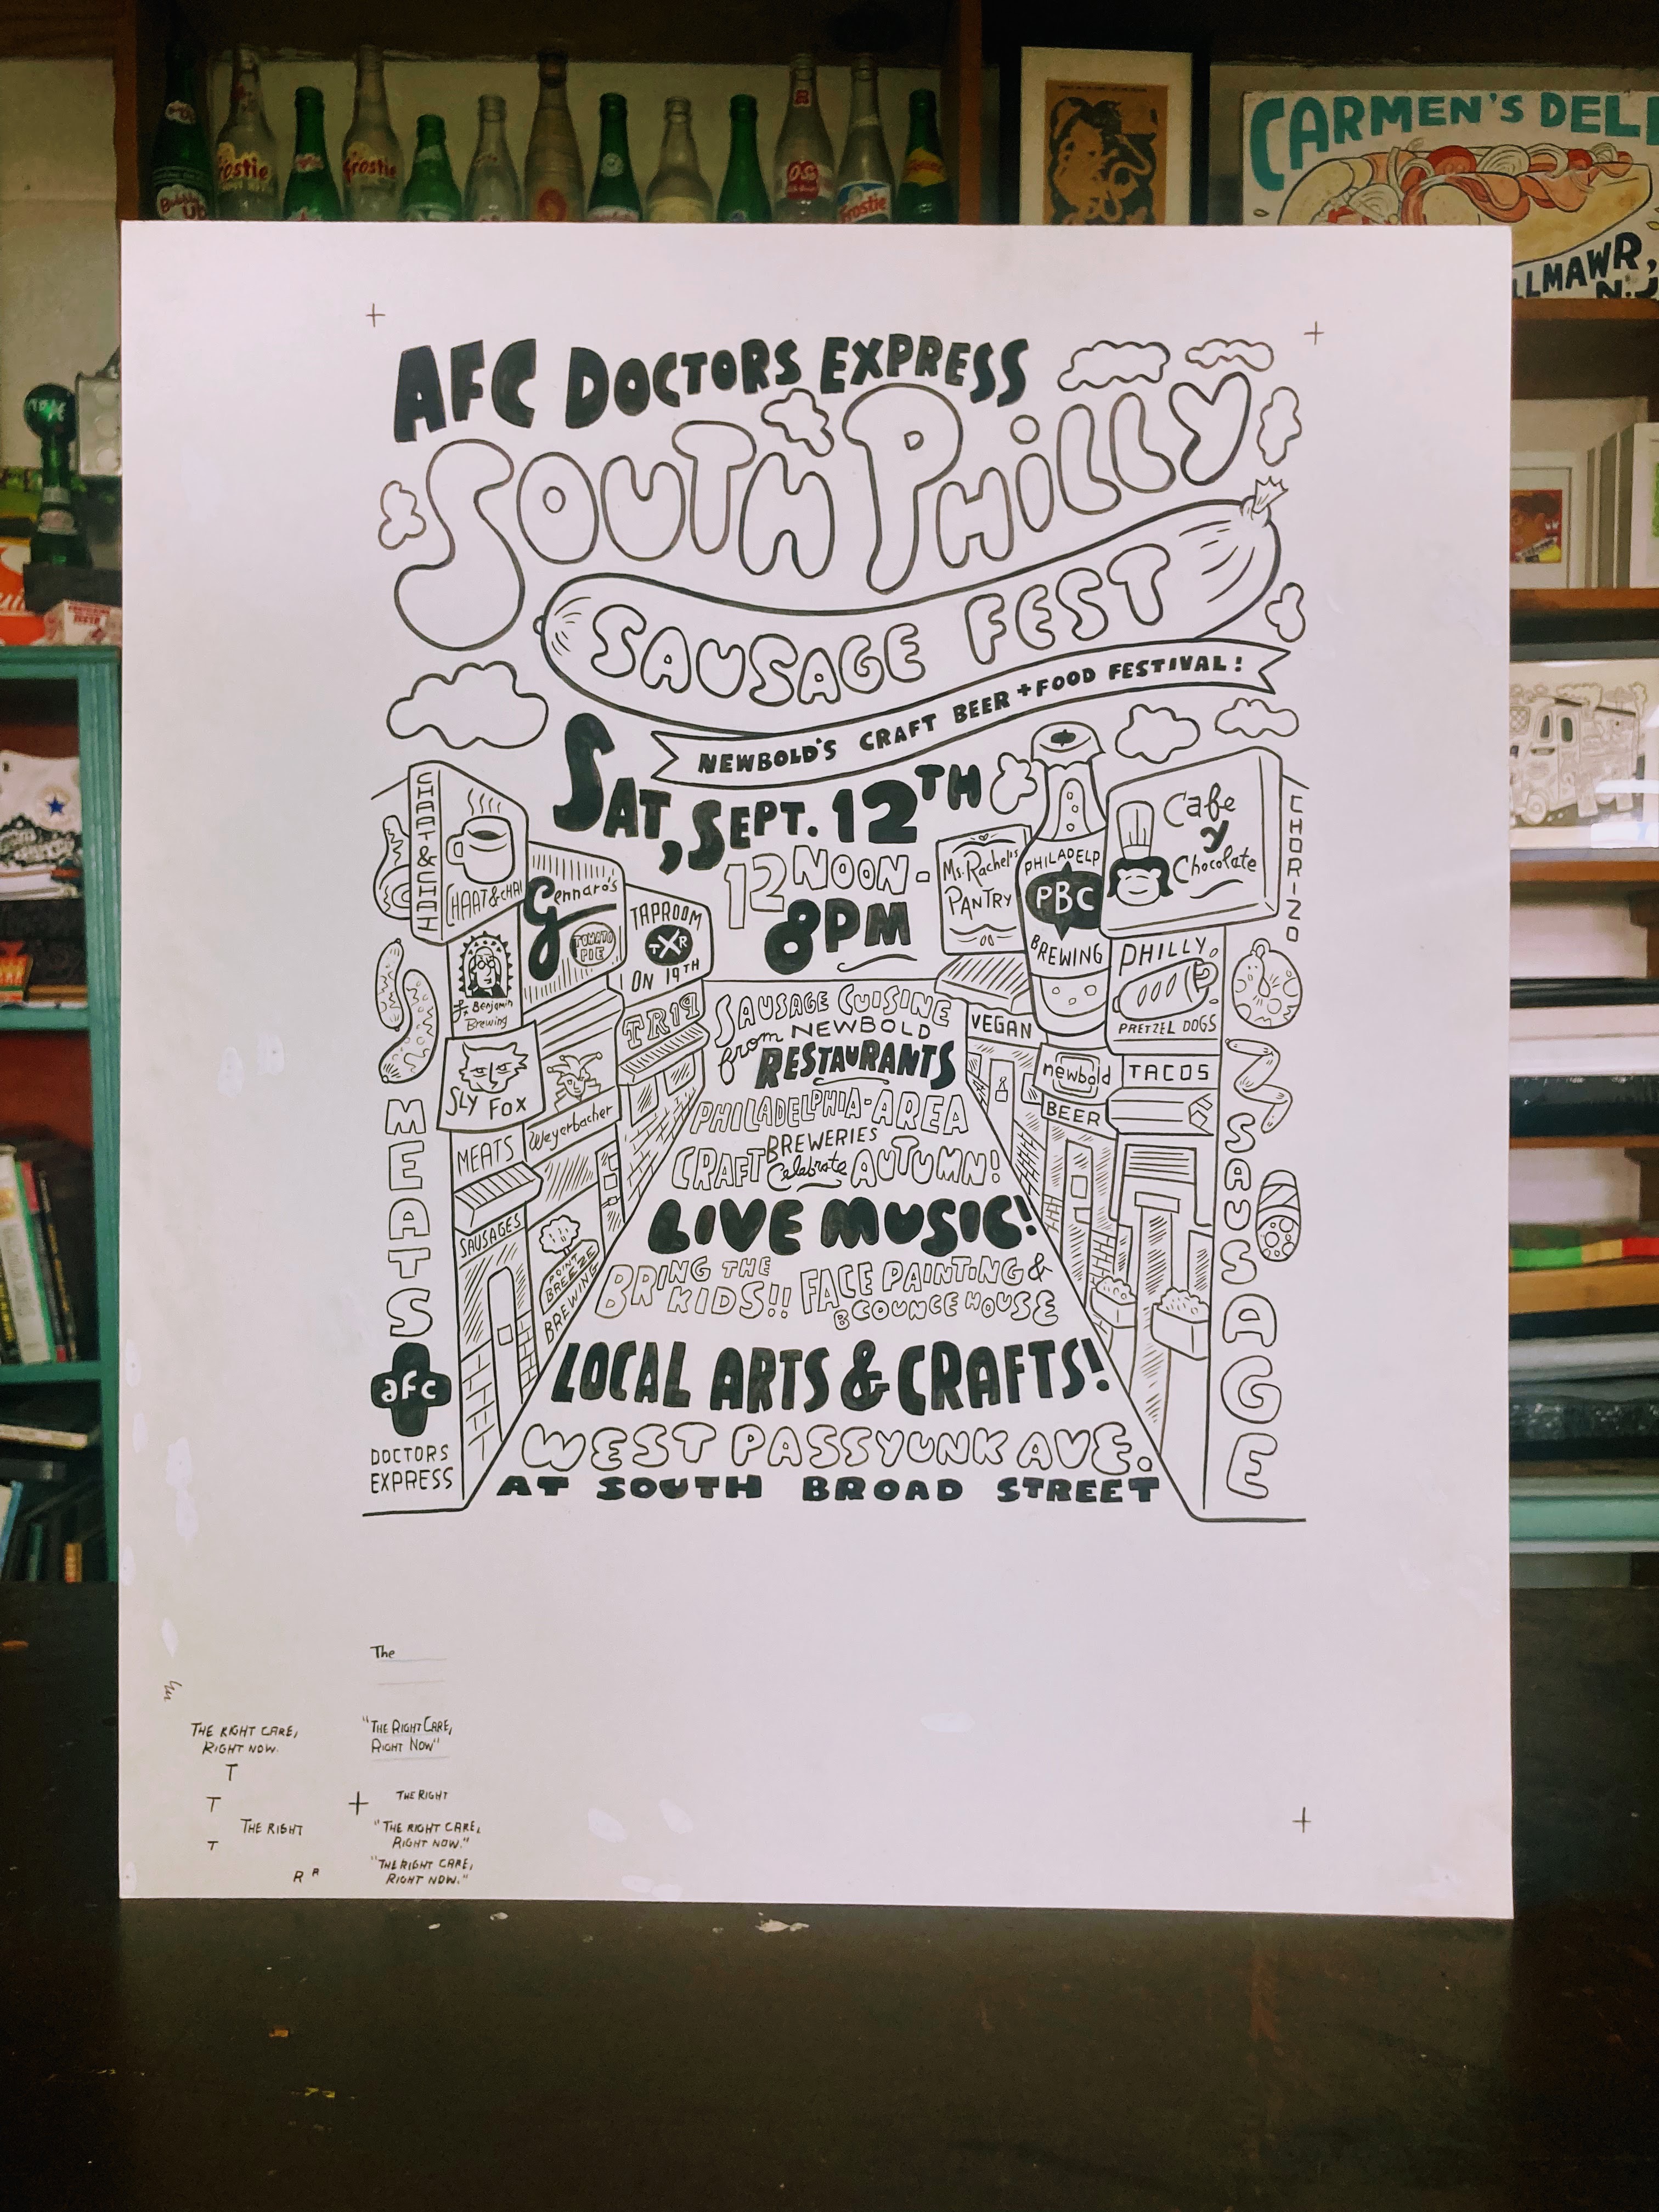 Bubble Up
Frostie
Frostie
Frostie
CARMEN'S DELI
LLMAWR,
N.J
AFC DOCTORS EXPRESS
SOUTH PHILLY
SAUSAGE FEST
NEWBOLD'S CRAFT BEER + FOOD FESTIVAL!
SAT, SEPT. 12TH
12 NOON-
8PM
CHAAT & CHAI
CHAAT & CHAI
Gennaro's
TOMATO
PIE
TAPROOM
TXR
ON 19TH
TR19
St. Benjamin
Brewing
SLY FOX
Weyerbacher
MEATS
SAUSAGES
POINT
BREEZE
BREWING
MEATS
afc
DOCTORS
EXPRESS
Ms. Rachel's
PANTRY
PHILADELP
PBC
BREWING
Cafe
y
Chocolate
CHORIZO
PHILLY
PRETZEL DOGS
VEGAN
newbold
TACOS
BEER
SAUSAGE
SAUSAGE CUISINE
from NEWBOLD
RESTAURANTS
PHILADELPHIA-AREA
CRAFT BREWERIES
Celebrate AUTUMN!
LIVE MUSIC!
BRING THE
KIDS!!
FACE PAINTING &
BCOUNCE HOUSE
LOCAL ARTS & CRAFTS!
WEST PASSYUNK AVE.
AT SOUTH BROAD STREET
The
THE RIGHT CARE,
RIGHT NOW.
"THE RIGHT CARE,
RIGHT NOW"
T
T
THE RIGHT
THE RIGHT
T
"THE RIGHT CARE,
RIGHT NOW."
R R
"THE RIGHT CARE,
RIGHT NOW."